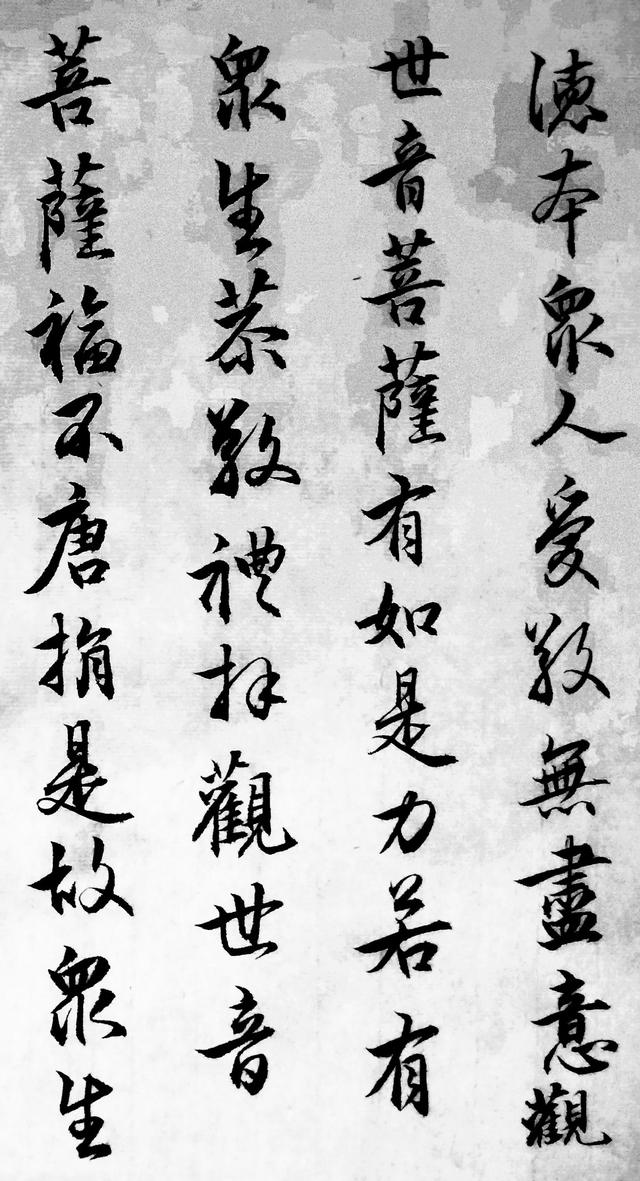 德本眾人愛敬無盡意觀
世音菩薩有如是力若有
眾生恭敬禮拜觀世音
菩薩福不唐捐是故眾生